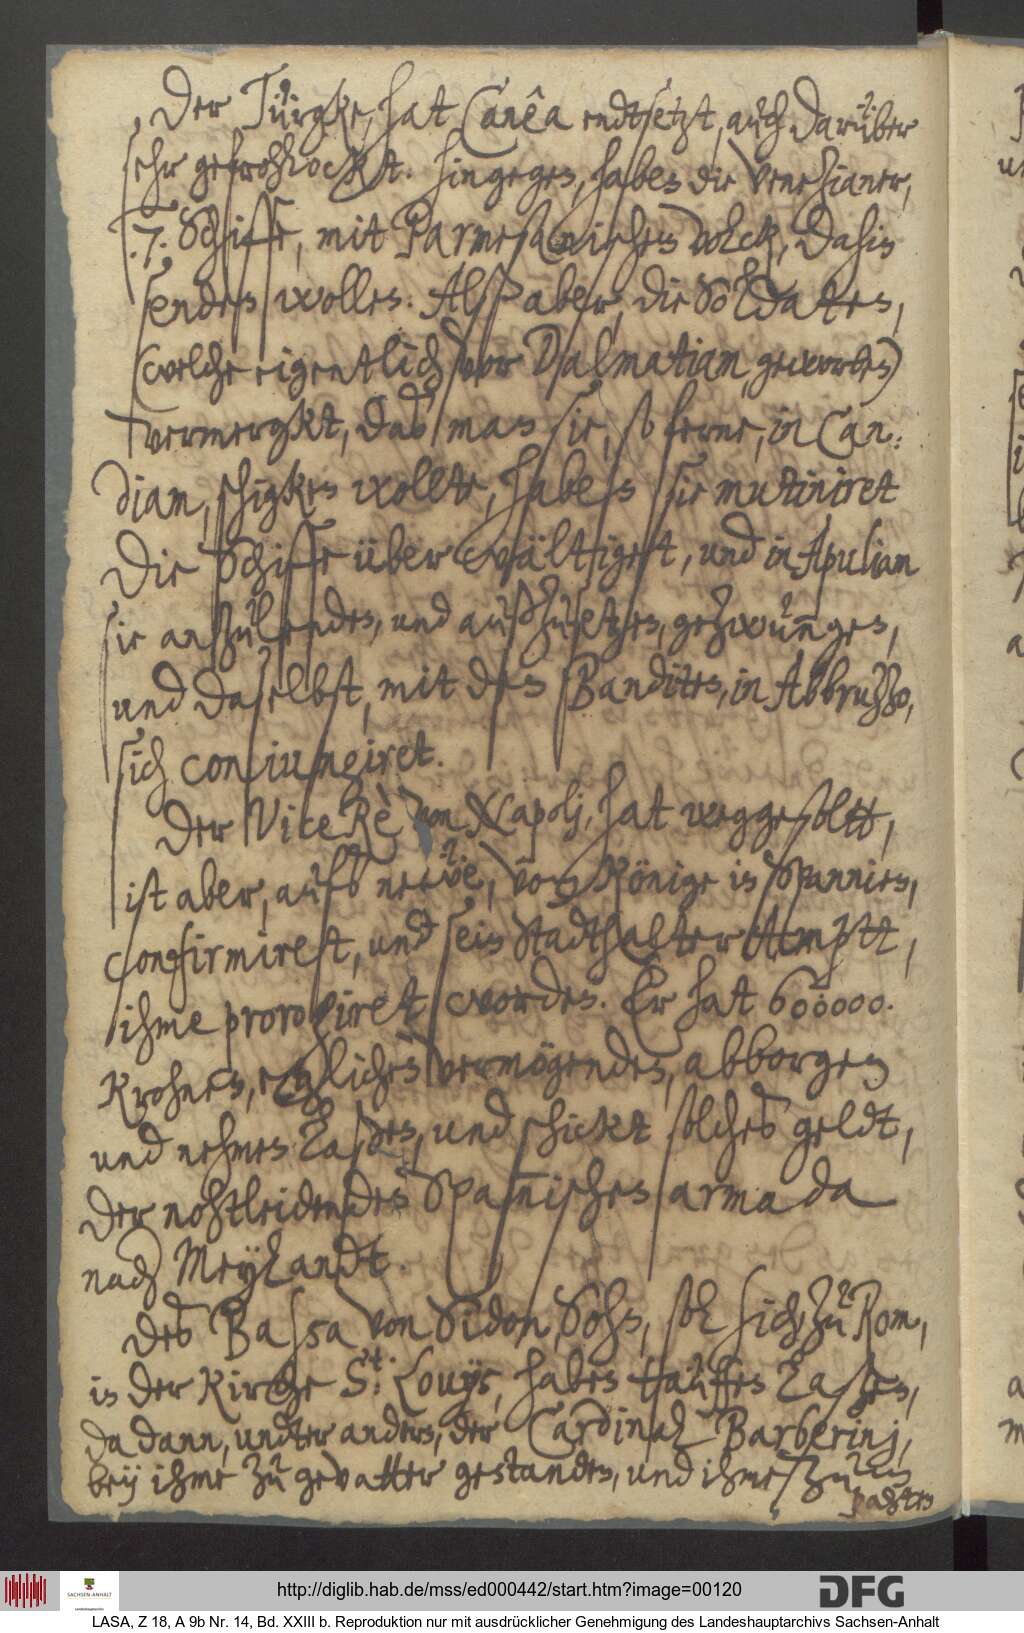 Der Türgke, hat Canêa endtsetzt, auch darüber
sehr gefrohlockt. Hingegen, haben die Venetianer,
.7. Schiffe, mit Parmesanischen volck, dahin
senden wollen. Alß aber, die Soldaten,
(welche eigentlich vor Dalmatiam geworben)
vermergkt, das man sie, so ferne, in Can¦
diam, schigken wollte, haben sie mutiniret
Die Schiffe überwältiget, und in Apuliam
sie anzulenden, und außzusetzen, gezwungen,
und daselbst, mit den Banditen, in Abbruzzo,
sich coniungiret.
Der Vice Rè von Napolj, hat weggesoltt,
ist aber, aufs neẅe, vom Könige in Spannien,
confirmiret, und sein Stadthalter Amptt,
ihme prorogiret worden. Er hat 600000.
Krohnen, etzlichen vermögenden, abborgen
und nehmen laßen, und schickt solches geldt,
der nohtleidenden Spannischen armada
nach Meylandt.
Des Bassa von Sidon, Sohn, sol sich, zu Rom,
in der Kirche St: Louys, haben tauffen laßen,
da dann, undter andern, der Cardinal Barberinj,
bey ihme zu gevatter gestanden, und ihme zum
pahten
http://diglib.hab.de/mss/ed000442/start.htm?image=00120
DFG
SACHSEN-ANHALT
LASA, Z 18, A 9b Nr. 14, Bd. XXIII b. Reproduktion nur mit ausdrücklicher Genehmigung des Landeshauptarchivs Sachsen-Anhalt